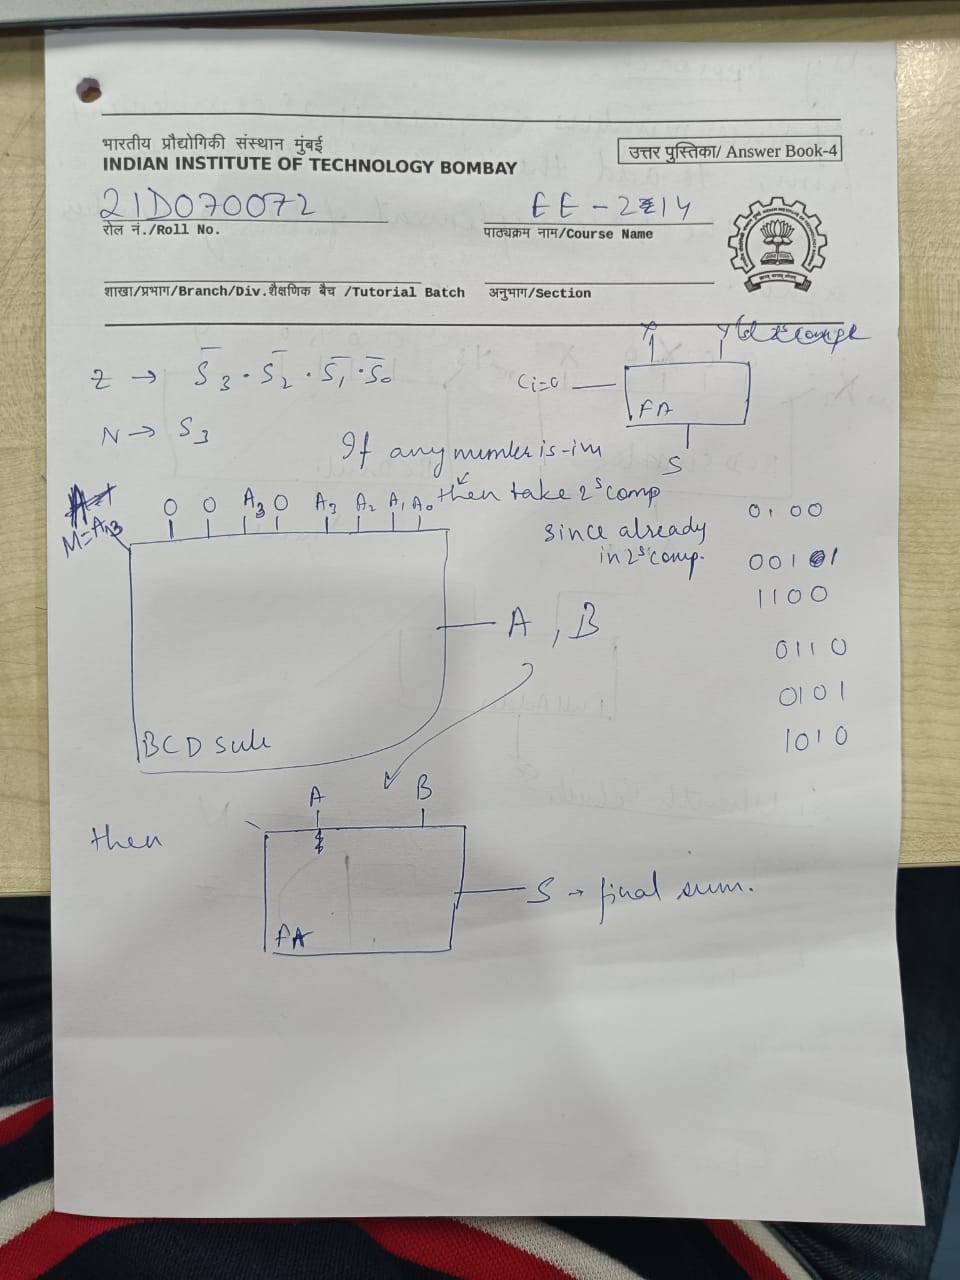 भारतीय प्रौद्योगिकी संस्थान मुंबई
INDIAN INSTITUTE OF TECHNOLOGY BOMBAY
उत्तर पुस्तिका/ Answer Book-4
21D070072
EE-214
रोल नं./Roll No.
पाठ्यक्रम नाम/Course Name
शाखा/प्रभाग/Branch/Div.शैक्षणिक बैच /Tutorial Batch
अनुभाग/Section
Z → S̅3 · S̅2 · S̅1 · S̅0
N → S3
Ci=0
FA
S
If any number is -im
then take 2's comp
since already
in 2's comp.
0 0 A3 0 A3 A2 A1 A0
BCD sub
A , B
0100
0010
1100
0110
0101
1010
then
A B
FA
S → final sum.